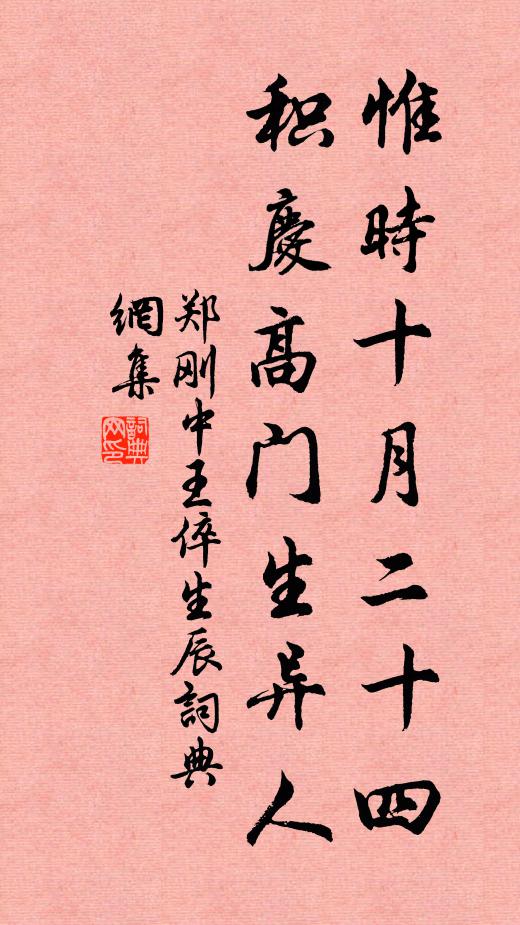 惟時十月二十四
积慶高门生异人
郑刚中王倅生辰詞典
網集
詞典
网印